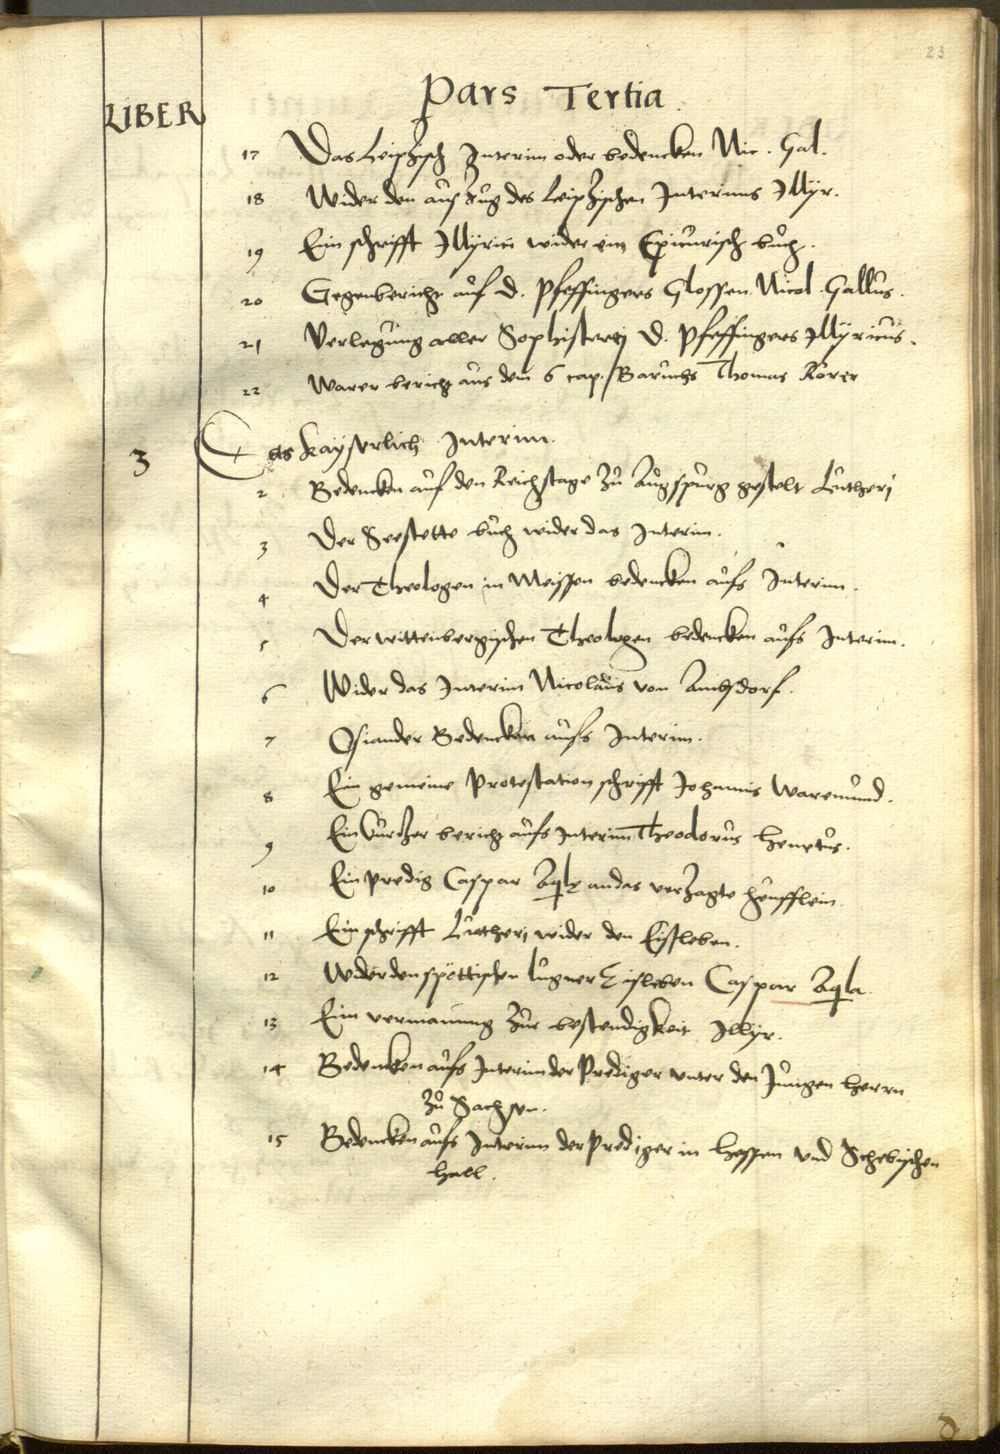 23
Pars Tertia
LIBER
17 Das Leipzisch Interim oder bedencken Nic. Gal.
18 Wider den auszug des Leipzischen Interims Illyr.
19 Ein schrifft Illyrici wider ein Epicurisch buch.
20 Gegenbericht auf D. Pfeffingers Glossen Nicol. Gallus.
21 Verlegung aller Sophisterej D. Pfeffingers Illyricus.
22 Warer bericht aus dem 6 cap. Baruchs Thomas Rörer
3 Das Kayserlich Interim.
2 Bedencken auf den Reichstage zu Augspurg gestelt Lutherj
3 Der Seestette buch wider das Interim.
4 Der Theologen in Meissen bedencken aufs Interim.
5 Der wittenbergischen Theologen bedencken aufs Interim.
6 Wider das Interim Nicolaus von Ambsdorf.
7 Osiander Bedencken aufs Interim.
8 Ein gemeine Protestation schrifft Johannis Waremund.
9 Ein kurtzer bericht aufs Interim Theodorus Henetus.
10 Ein predig Caspar Aqlę an das verzagte heufflein.
11 Ein schrifft Lutherj wider den Eissleben.
12 Wider den spöttischen lugner Eisleben Caspar Aqla.
13 Ein vermanung zur bestendigkeit Illyr.
14 Bedencken aufs Interim der Prediger unter den Jungen herrn
zu Sachsen.
15 Bedencken aufs Interim der Prediger in Hessen vnd Schebischen
hall.